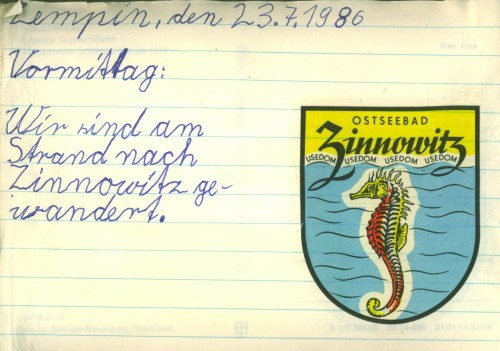 Zempin, den 23.7.1986
Vormittag:
Wir sind am
Strand nach
Zinnowitz ge-
wandert.
OSTSEEBAD
Zinnowitz
USEDOM USEDOM USEDOM USEDOM